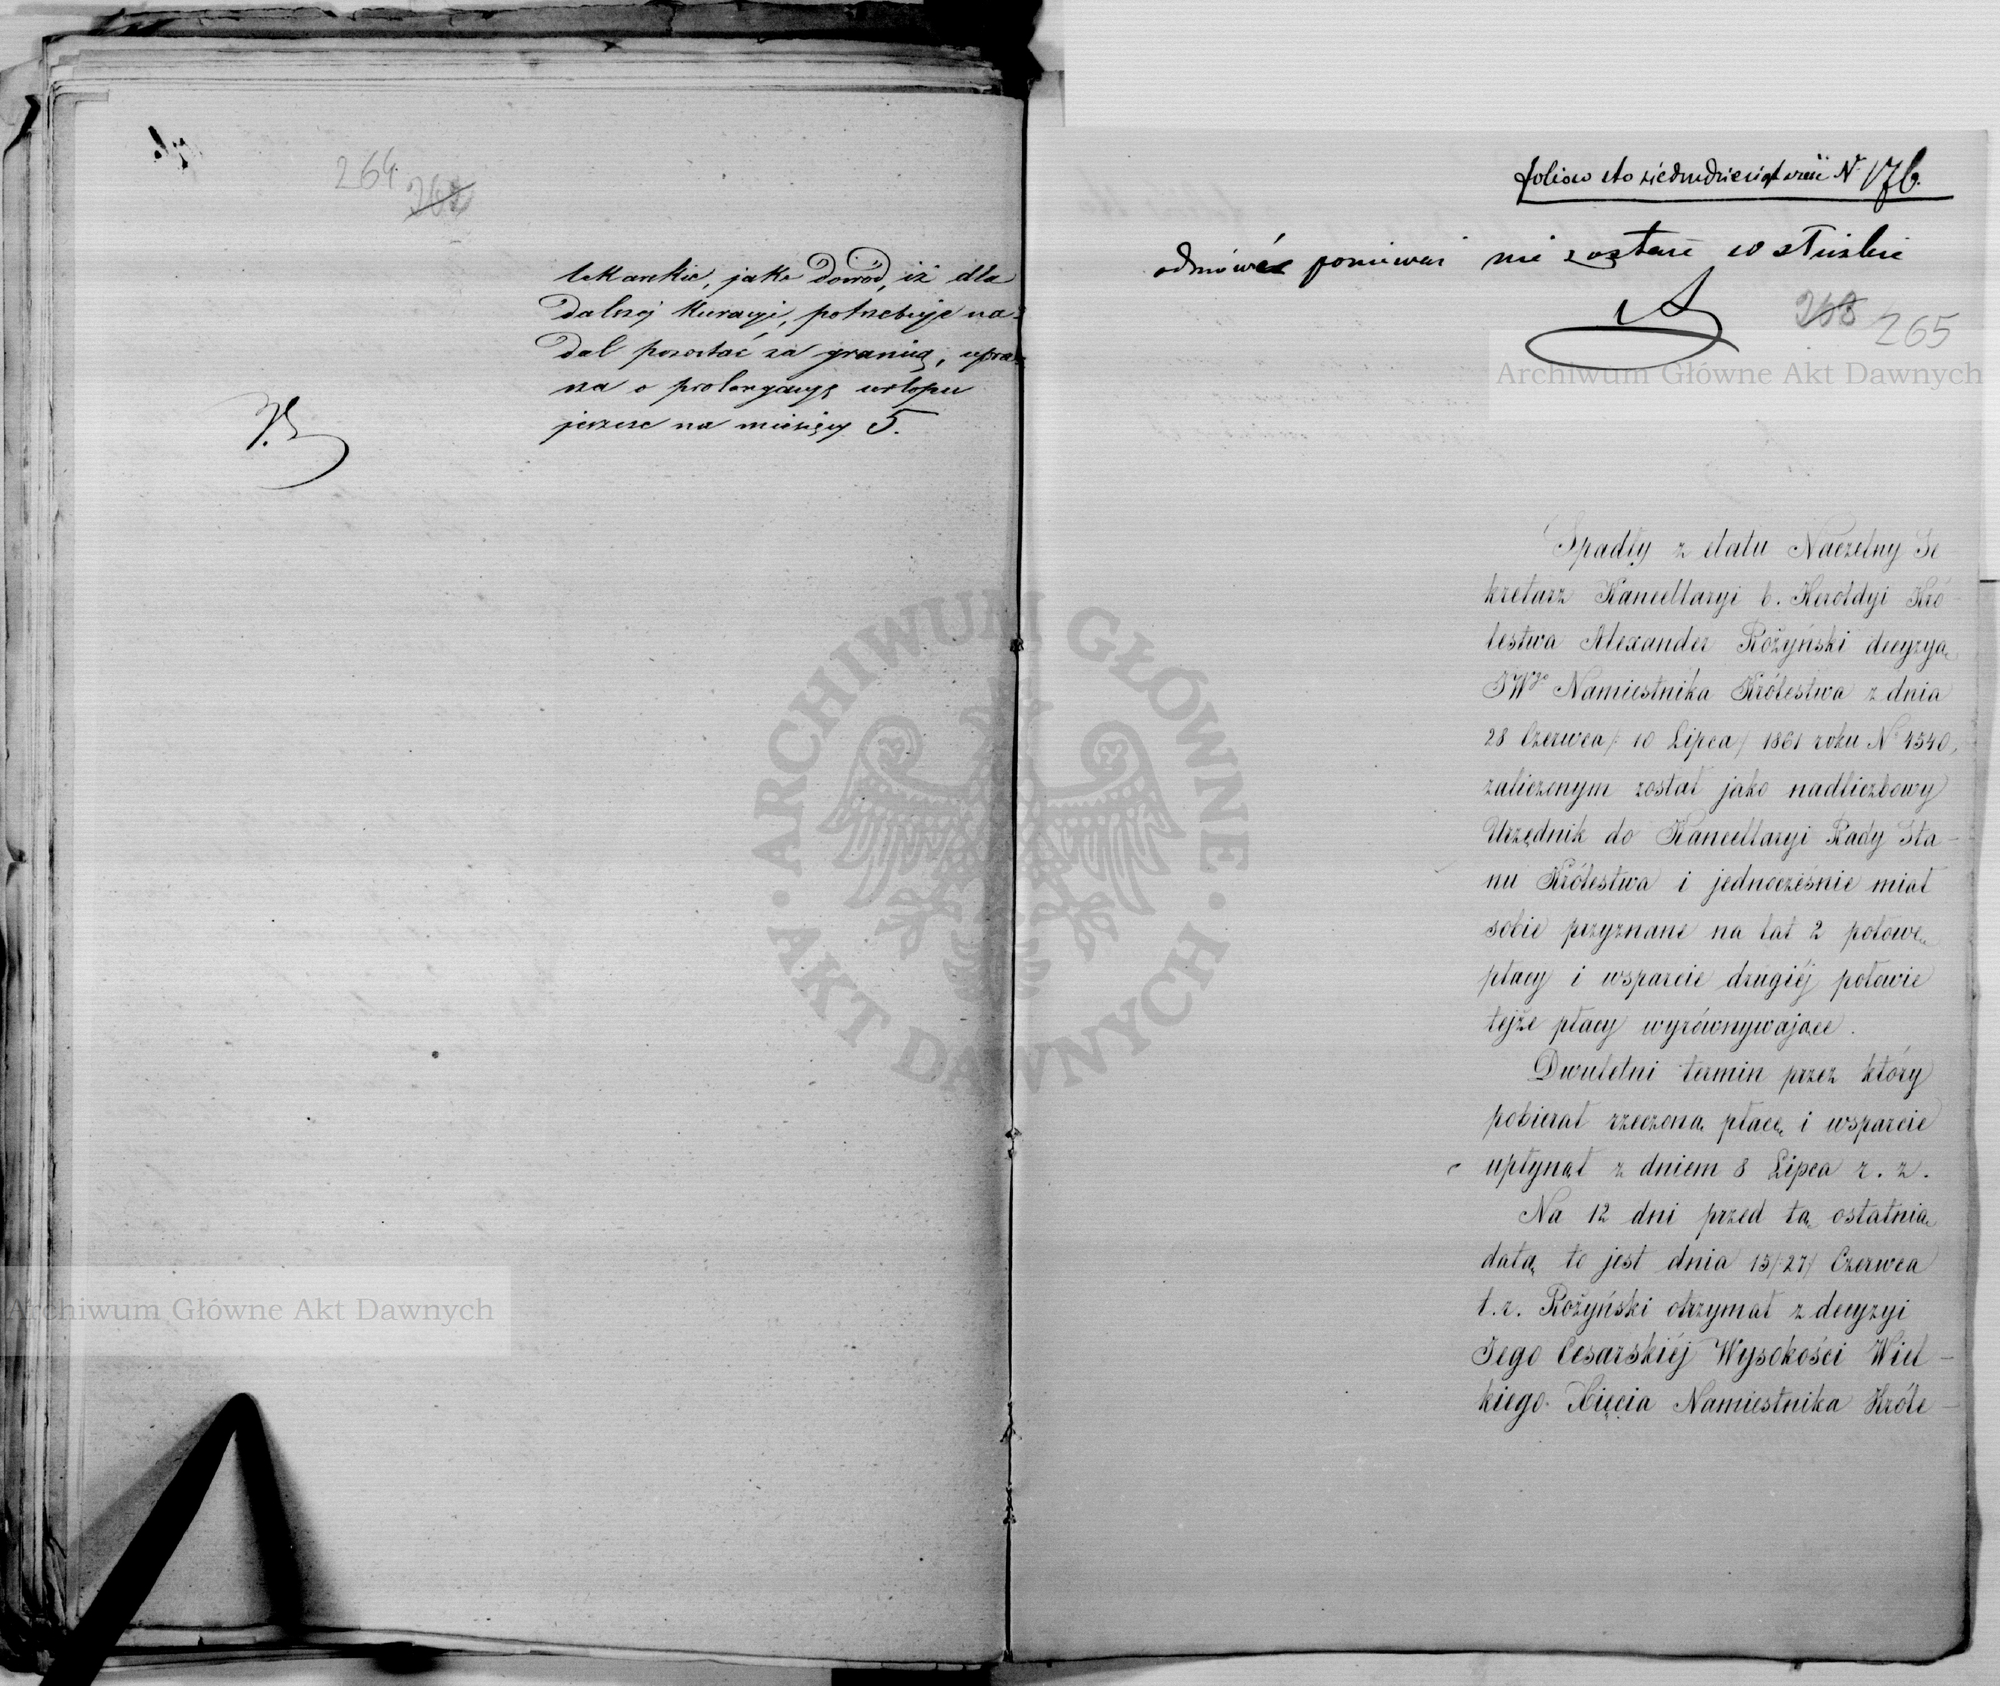 264
lekarskie, jako Dowód, iż dla
Dalszej Kuracyi, potrzebuje na-
Dal pozostać za granicą, upra-
sza o prolongacyę urlopu
jeszcze na miesięcy 5.
foliow sto siedmdziesiąt N 176.
odmówić ponieważ nie zostaie w służbie
268 265
Archiwum Główne Akt Dawnych
Spadły z etatu Naczelny Se
kretarz Kancellaryi b. Heroldyi Kró
lestwa Alexander Rożyński decyzyą
JWgo Namiestnika Królestwa z dnia
28 Czerwca /: 10 Lipca / 1861 roku No 4540,
zaliczonym został jako nadliczbowy
Urzędnik do Kancellaryi Rady Sta-
nu Królestwa i jednocześnie miał
sobie przyznane na lat 2 połowę
płacy i wsparcie drugiéj połowie
tejże płacy wyrównywające.
Dwuletni termin przez który
pobierał rzeczoną płacę i wsparcie
upłynął z dniem 8 Lipca r. z.
Na 12 dni przed tą ostatnią
datą to jest dnia 15/27/ Czerwca
t. r. Rożyński otrzymał z decyzyi
Jego Cesarskiéj Wysokości Wiel-
kiego Xięcia Namiestnika Króle-
ARCHIWUM GŁÓWNE AKT DAWNYCH
Archiwum Główne Akt Dawnych